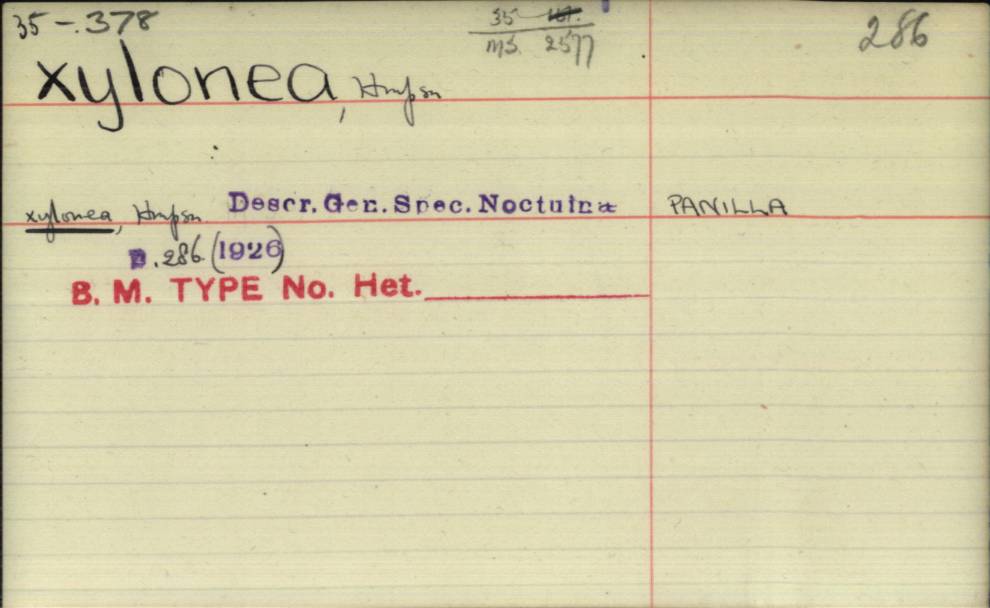 35-.378
35
MS. 2577
286
xylonea, Hmpsn
xylonea, Hmpsn Descr. Gen. Spec. Noctuinæ PANILLA
p. 286. (1926)
B. M. TYPE No. Het.